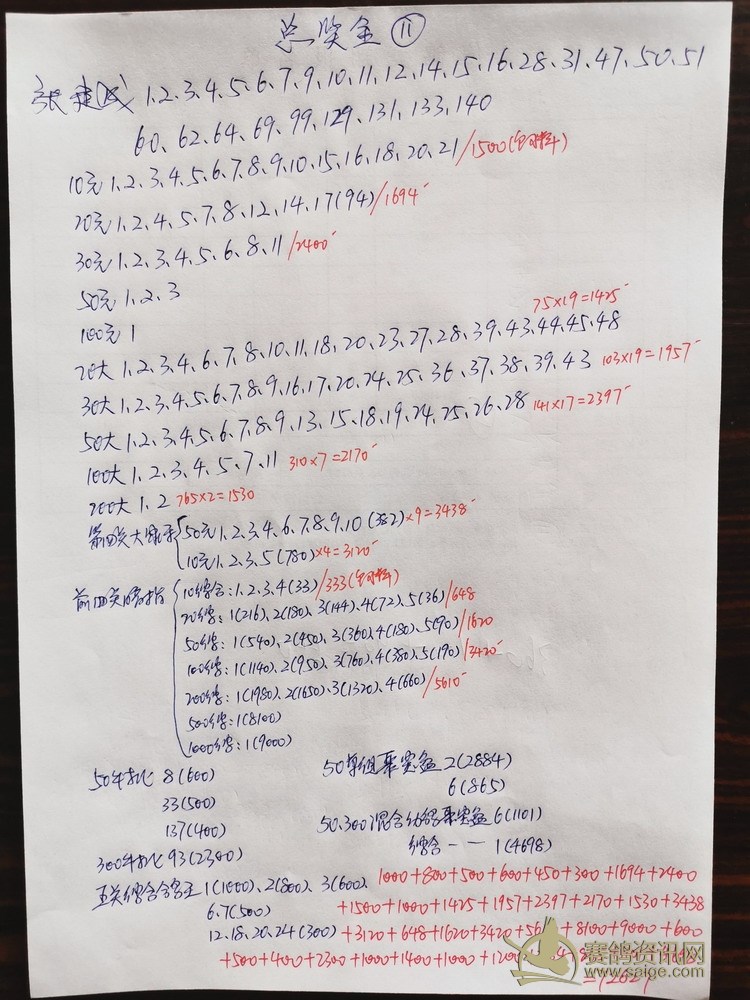 总奖金 ⑪
张建成 1、2、3、4、5、6、7、9、10、11、12、14、15、16、28、31、47、50、51
60、62、64、69、99、129、131、133、140
10元 1、2、3、4、5、6、7、8、9、10、15、16、18、20、21/1500
20元 1、2、4、5、7、8、12、14、17(94)/1694
30元 1、2、3、4、5、6、8、11/2400
50元 1、2、3
100元 1
75×19=1425
20大 1、2、3、4、6、7、8、10、11、18、20、23、27、28、39、43、44、45、48
30大 1、2、3、4、5、6、7、8、9、16、17、20、24、25、36、37、38、39、43 103×19=1957
50大 1、2、3、4、5、6、7、8、9、13、15、18、19、24、25、26、28 141×17=2397
100大 1、2、3、4、5、7、11 310×7=2170
200大 1、2 765×2=1530
50元 1、2、3、4、6、7、8、9、10(382)×9=3438
10元 1、2、3、5(780)×4=3120
前四关鸽指
10综合:1、2、3、4(33)/333
20综:1(216)、2(180)、3(144)、4(72)、5(36)/648
50综:1(540)、2(450)、3(360)、4(180)、5(90)/1620
100综:1(1140)、2(950)、3(760)、4(380)、5(190)/3420
200综:1(1980)、2(1650)、3(1320)、4(660)/5610
500综:1(8100)
1000综:1(9000)
50单挑 8(600)
33(500)
137(400)
300单挑 93(2300)
50单组聚宝盆 2(2884)
6(865)
50、300混合结组聚宝盆 6(1101)
综合一一 1(4698)
五关综合鸽王 1(1000)、2(800)、3(600)、
6、7(500)
12、18、20、24(300)
1000+800+500+600+450+300+1694+2400
+1500+1000+1425+1957+2397+2170+1530+3438
+3120+648+1620+3420+5610+8100+9000+600
+500+400+2300+1000+1400+1000+1200
赛鸽资讯网
www.saige.com